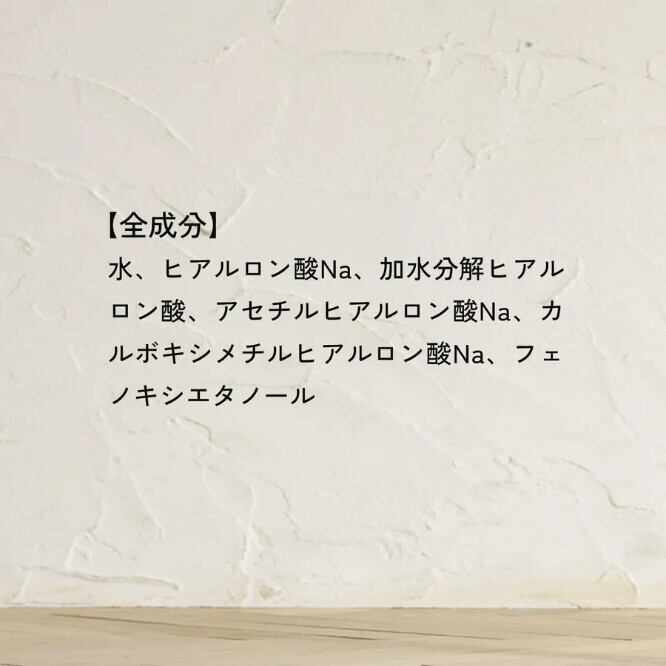 【全成分】
水、ヒアルロン酸Na、加水分解ヒアル
ロン酸、アセチルヒアルロン酸Na、カ
ルボキシメチルヒアルロン酸Na、フェ
ノキシエタノール